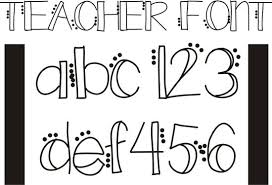 TEACHER FONT
abc 123
def456